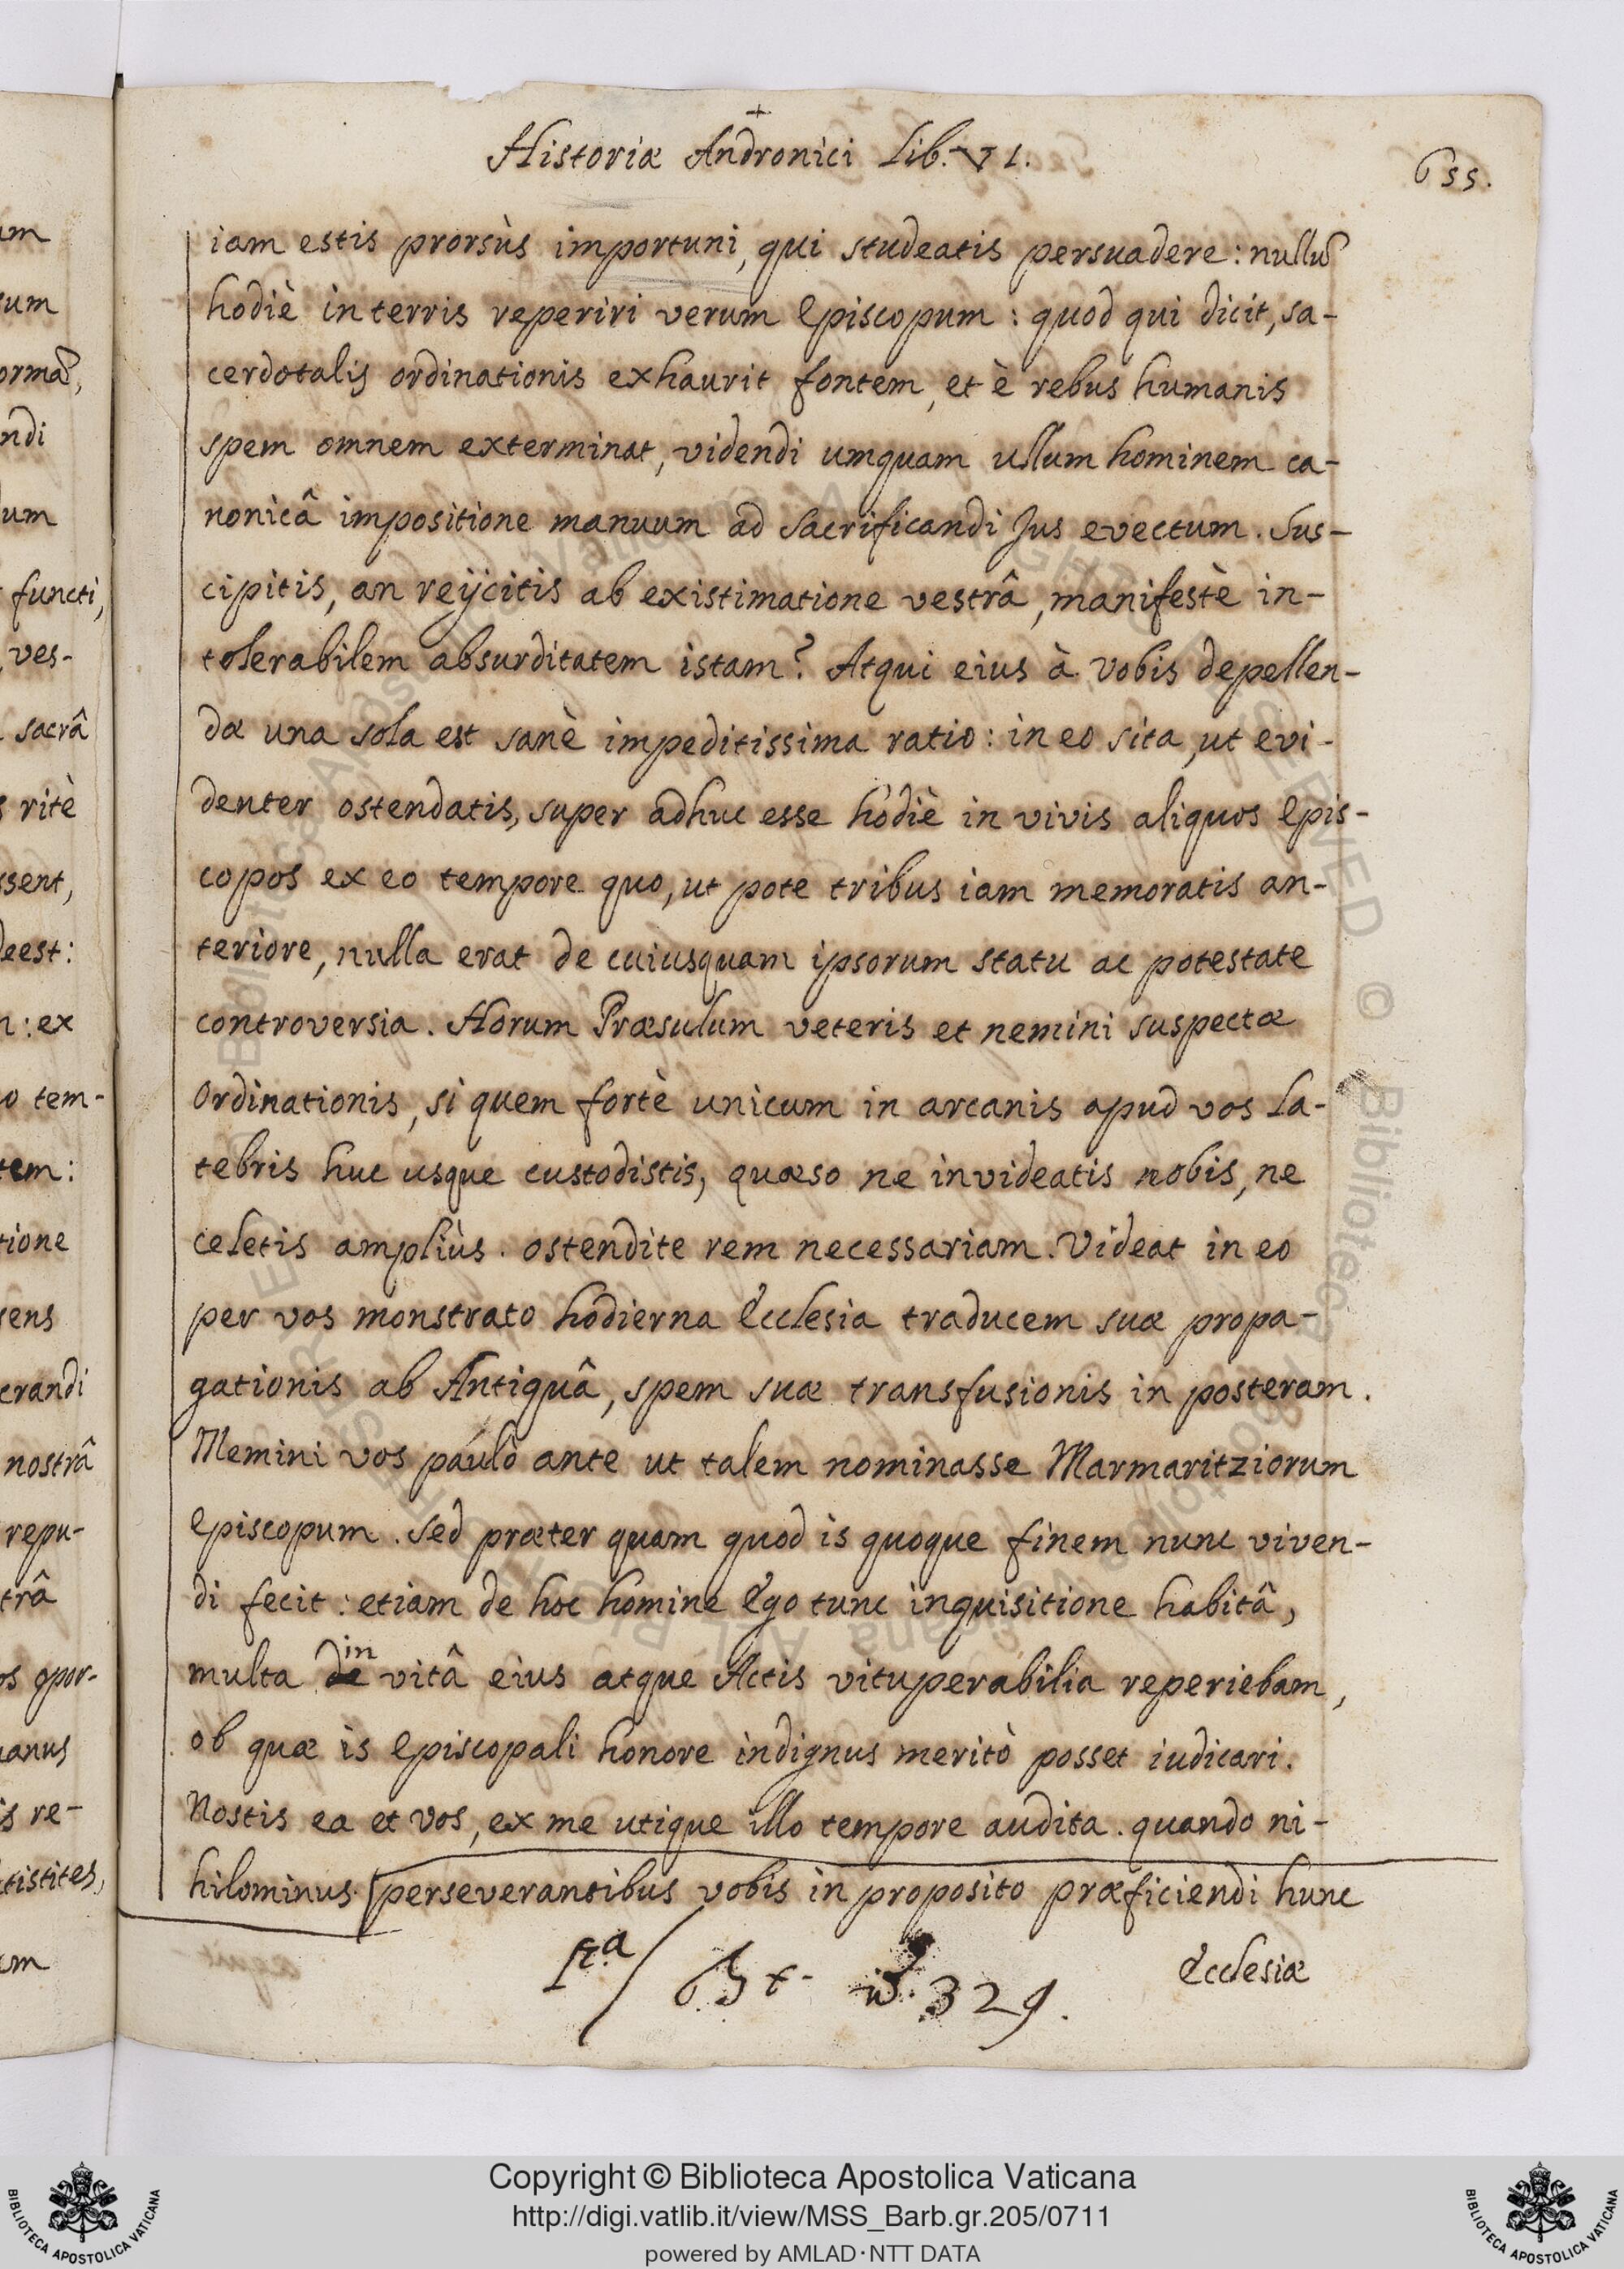 Historiæ Andronici Lib. VI.
655.
iam estis prorsùs importuni, qui studeatis persuadere: nullũ
hodiè in terris reperiri verum Episcopum: quod qui dicit, sa-
cerdotalis ordinationis exhaurit fontem, et è rebus humanis
spem omnem exterminat, videndi umquam ullum hominem ca-
nonicâ impositione manuum ad sacrificandi Jus evectum. Sus-
cipitis, an reijcitis ab existimatione vestrâ, manifestè in-
tolerabilem absurditatem istam? Atqui eius à vobis depellen-
dæ una sola est sanè impeditissima ratio: in eo sita, ut evi-
denter ostendatis, super adhuc esse hodiè in vivis aliquos Epis-
copos ex eo tempore quo, ut pote tribus iam memoratis an-
teriore, nulla erat de cuiusquam ipsorum statu ac potestate
controversia. Horum Præsulum veteris et nemini suspectæ
Ordinationis, si quem fortè unicum in arcanis apud vos la-
tebris huc usque custodistis, quæso ne invideatis nobis, ne
celetis ampliùs. ostendite rem necessariam. Videat in eo
per vos monstrato hodierna Ecclesia traducem suæ propa-
gationis ab Antiquâ, spem suæ transfusionis in posteram.
Memini vos paulò ante ut talem nominasse Marmaritziorum
Episcopum. Sed præter quam quod is quoque finem nunc viven-
di fecit: etiam de hoc homine Ego tunc inquisitione habitâ,
multa de in vitâ eius atque Actis vituperabilia reperiebam,
ob quæ is Episcopali honore indignus meritò posset iudicari.
Nostis ea et vos, ex me utique illo tempore audita. quando ni-
hilominus perseverantibus vobis in proposito præficiendi hunc
Ecclesiæ
329.
um
sum
ormã,
ndi
lum
functi,
ves-
sacrâ
s ritè
ssent,
deest:
: ex
o tem-
tem:
tione
sens
crandi
nostrâ
repu-
trâ
os opor-
manus
is re-
tistites,
um
Copyright © Biblioteca Apostolica Vaticana
http://digi.vatlib.it/view/MSS_Barb.gr.205/0711
powered by AMLAD·NTT DATA
BIBLIOTECA APOSTOLICA VATICANA
BIBLIOTECA APOSTOLICA VATICANA